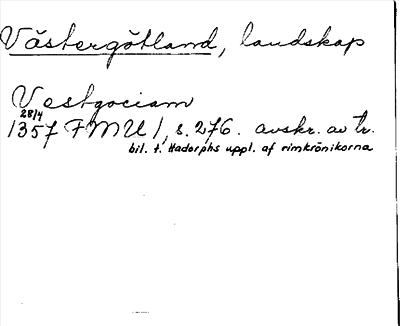 Västergötland, landskap
Vestgociam
28/4
1357 FMU 1, s. 276. avskr. av tr.
bil. t. Hadorphs uppl. af rimkrönikorna